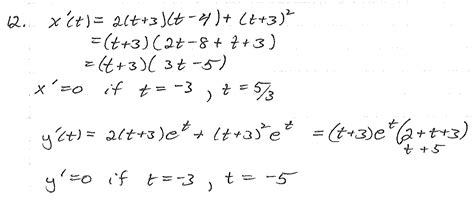 12. x'(t) = 2(t+3)(t-4) + (t+3)²
= (t+3)(2t-8+t+3)
= (t+3)(3t-5)
x'=0 if t=-3, t=5/3
y'(t) = 2(t+3)eᵗ + (t+3)²eᵗ = (t+3)eᵗ(2+t+3)
t+5
y'=0 if t=-3, t=-5